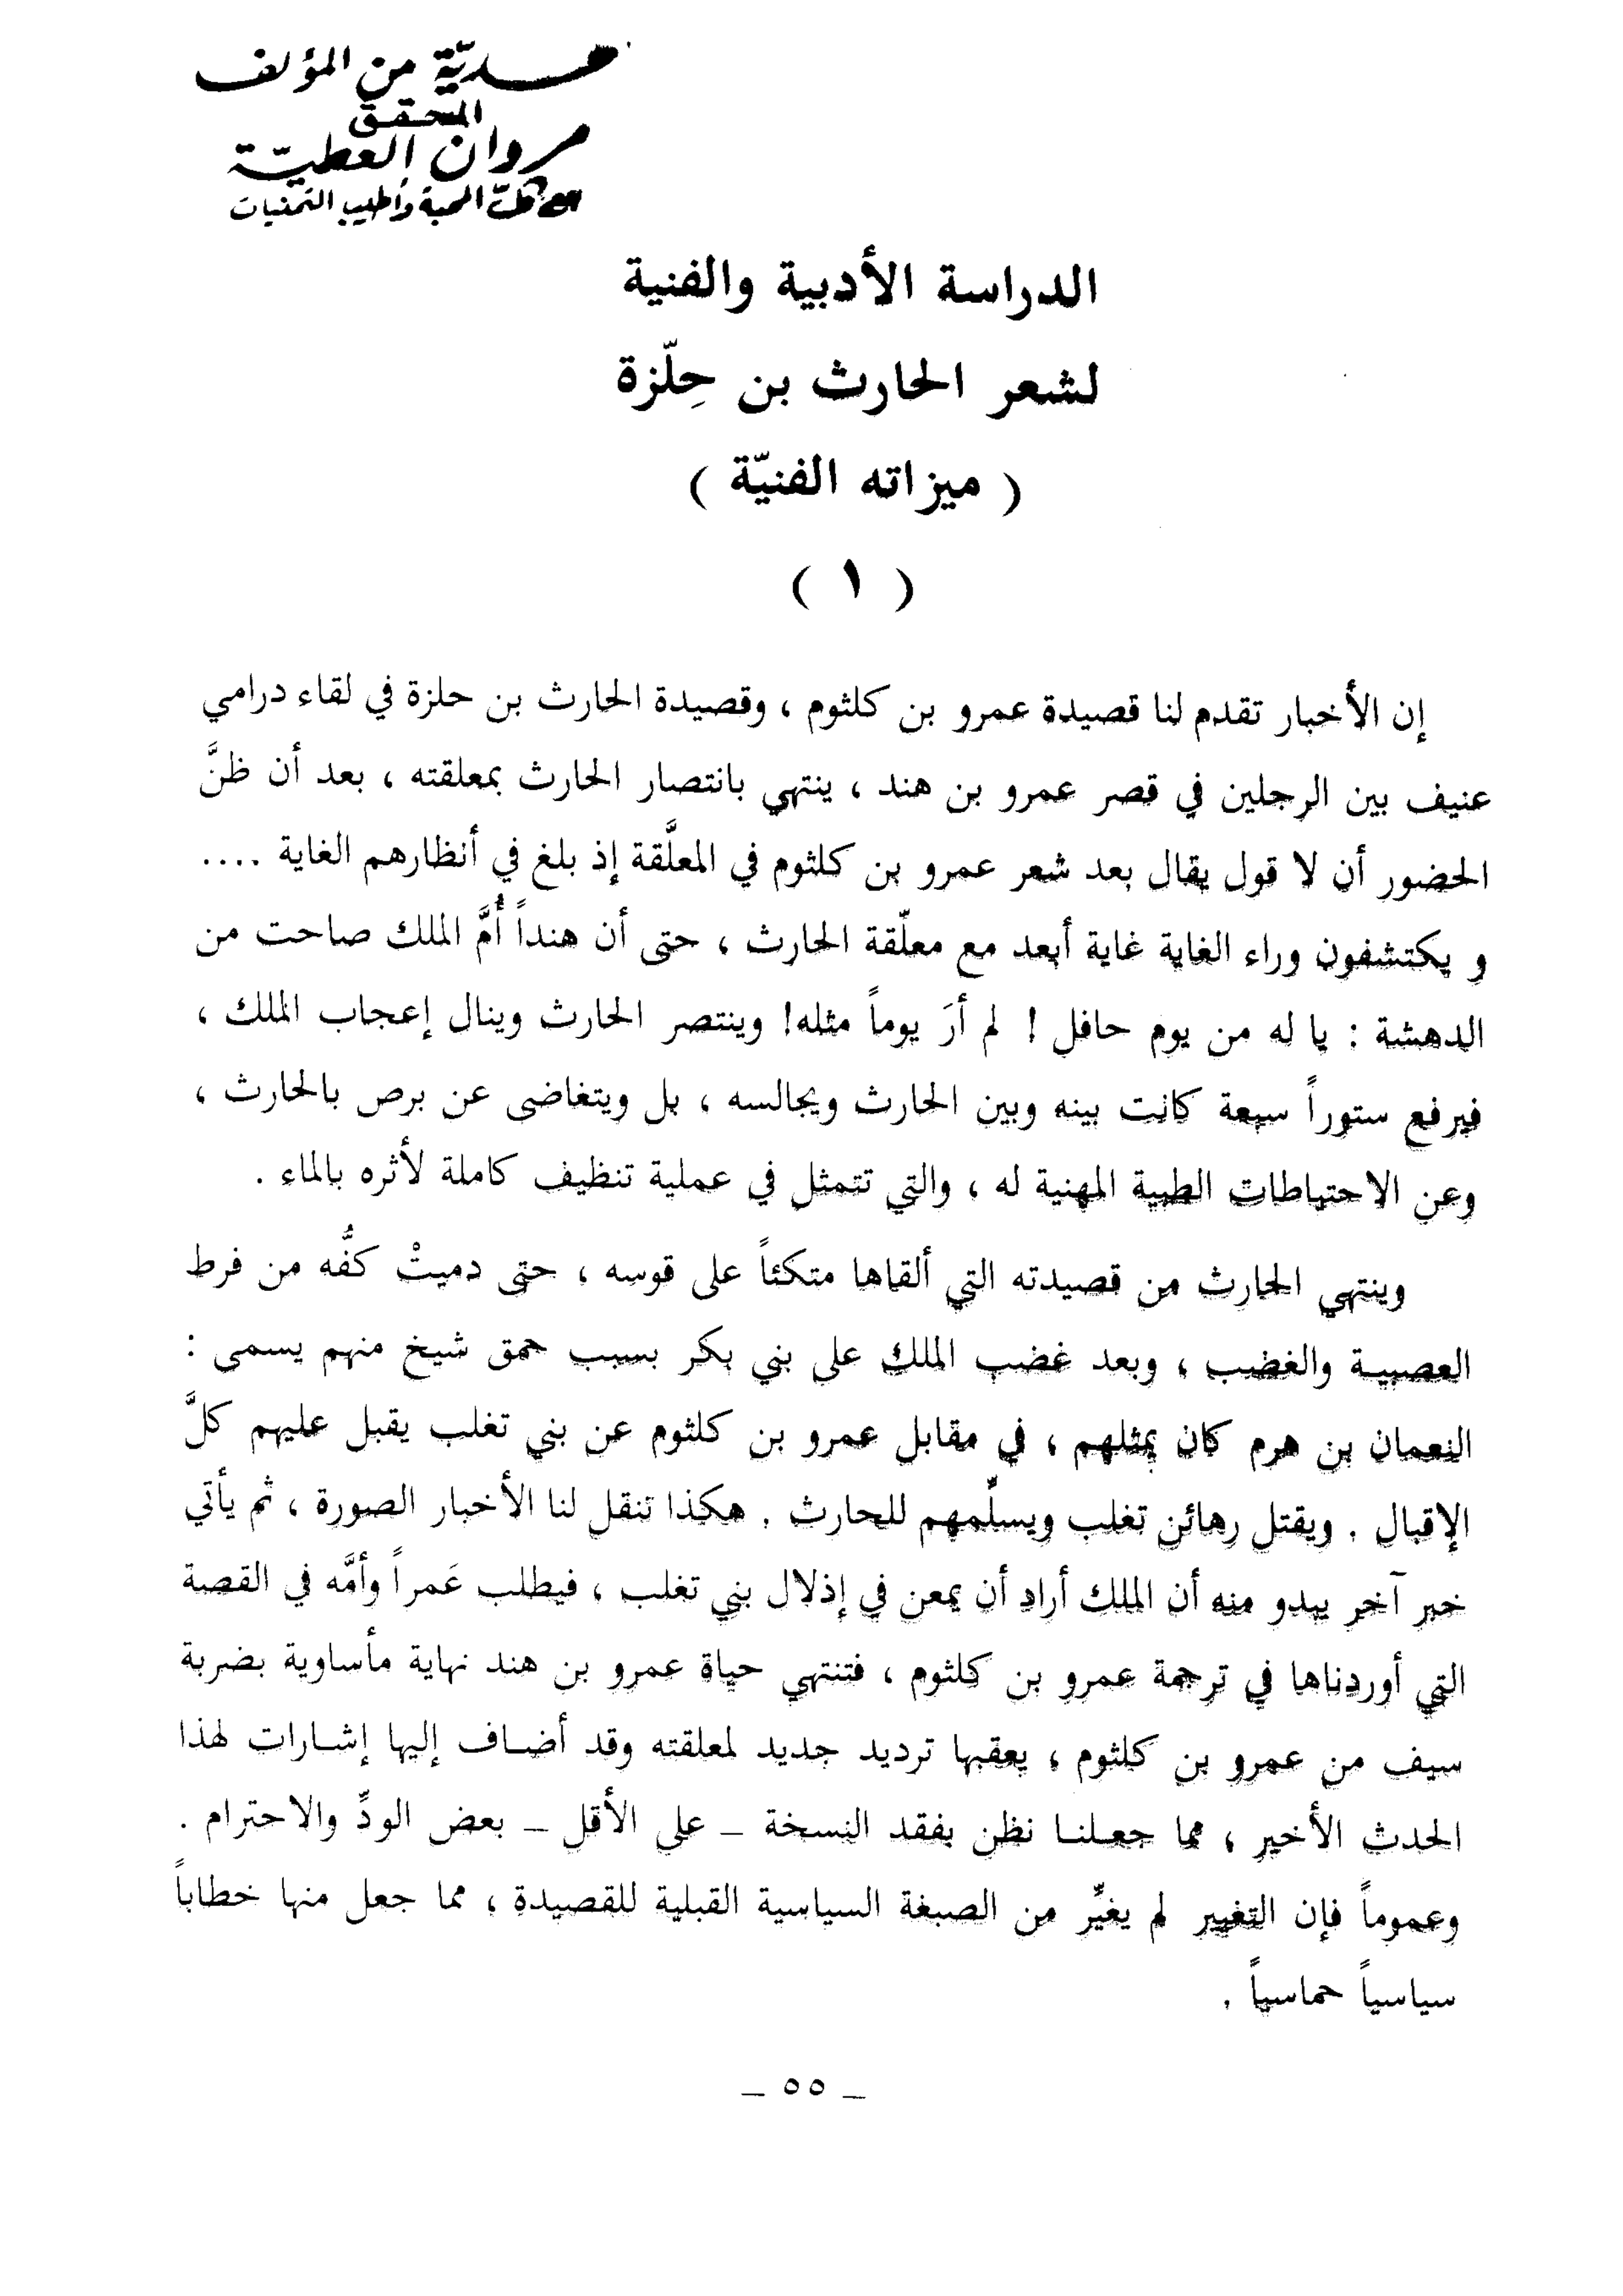 هديّة من المؤلف
المحقق
مروان العطيّة
مع كلّ المحبة وأطيب التمنيات
الدراسة الأدبية والفنية
لشعر الحارث بن حِلّزة
( ميزاته الفنيّة )
( ١ )
إن الأخبار تقدم لنا قصيدة عمرو بن كلثوم ، وقصيدة الحارث بن حلزة في لقاء درامي
عنيف بين الرجلين في قصر عمرو بن هند ، ينتهي بانتصار الحارث بمعلقته ، بعد أن ظنَّ
الحضور أن لا قول يقال بعد شعر عمرو بن كلثوم في المعلَّقة إذ بلغ في أنظارهم الغاية ....
و يكتشفون وراء الغاية غاية أبعد مع معلّقة الحارث ، حتى أن هنداً أُمَّ الملك صاحت من
الدهشة : يا له من يوم حافل ! لم أرَ يوماً مثله! وينتصر الحارث وينال إعجاب الملك ،
فيرفع ستوراً سبعة كانت بينه وبين الحارث ويجالسه ، بل ويتغاضى عن برص بالحارث ،
وعن الاحتياطات الطبية المهنية له ، والتي تتمثل في عملية تنظيف كاملة لأثره بالماء .
وينتهي الحارث من قصيدته التي ألقاها متكئاً على قوسه ، حتى دميتْ كفُّه من فرط
العصبيـة والغضب ، وبعد غضب الملك على بني بكر بسبب حمق شيخ منهم يسمى :
النعمان بن هرم كان يمثلهم ، في مقابل عمرو بن كلثوم عن بني تغلب يقبل عليهم كلَّ
الإقبال . ويقتل رهائن تغلب ويسلّمهم للحارث . هكذا تنقل لنا الأخبار الصورة ، ثم يأتي
خبر آخر يبدو منه أن الملك أراد أن يمعن في إذلال بني تغلب ، فيطلب عَمراً وأمَّه في القصة
التي أوردناها في ترجمة عمرو بن كلثوم ، فتنتهي حياة عمرو بن هند نهاية مأساوية بضربة
سيف من عمرو بن كلثوم ، يعقبها ترديد جديد لمعلقته وقد أضـاف إليها إشـارات لهذا
الحدث الأخير ، مما جعـلنـا نظن بفقد النسخة – على الأقل – بعض الودِّ والاحترام .
وعموماً فإن التغيير لم يغيِّر من الصبغة السياسية القبلية للقصيدة ، مما جعل منها خطاباً
سياسياً حماسياً .
– ٥٥ –